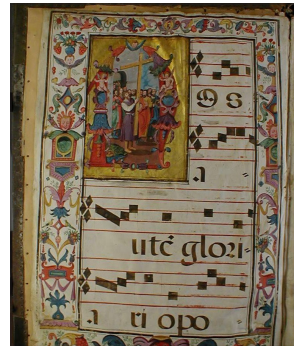 OS
a=
utē glori-
a ri opo